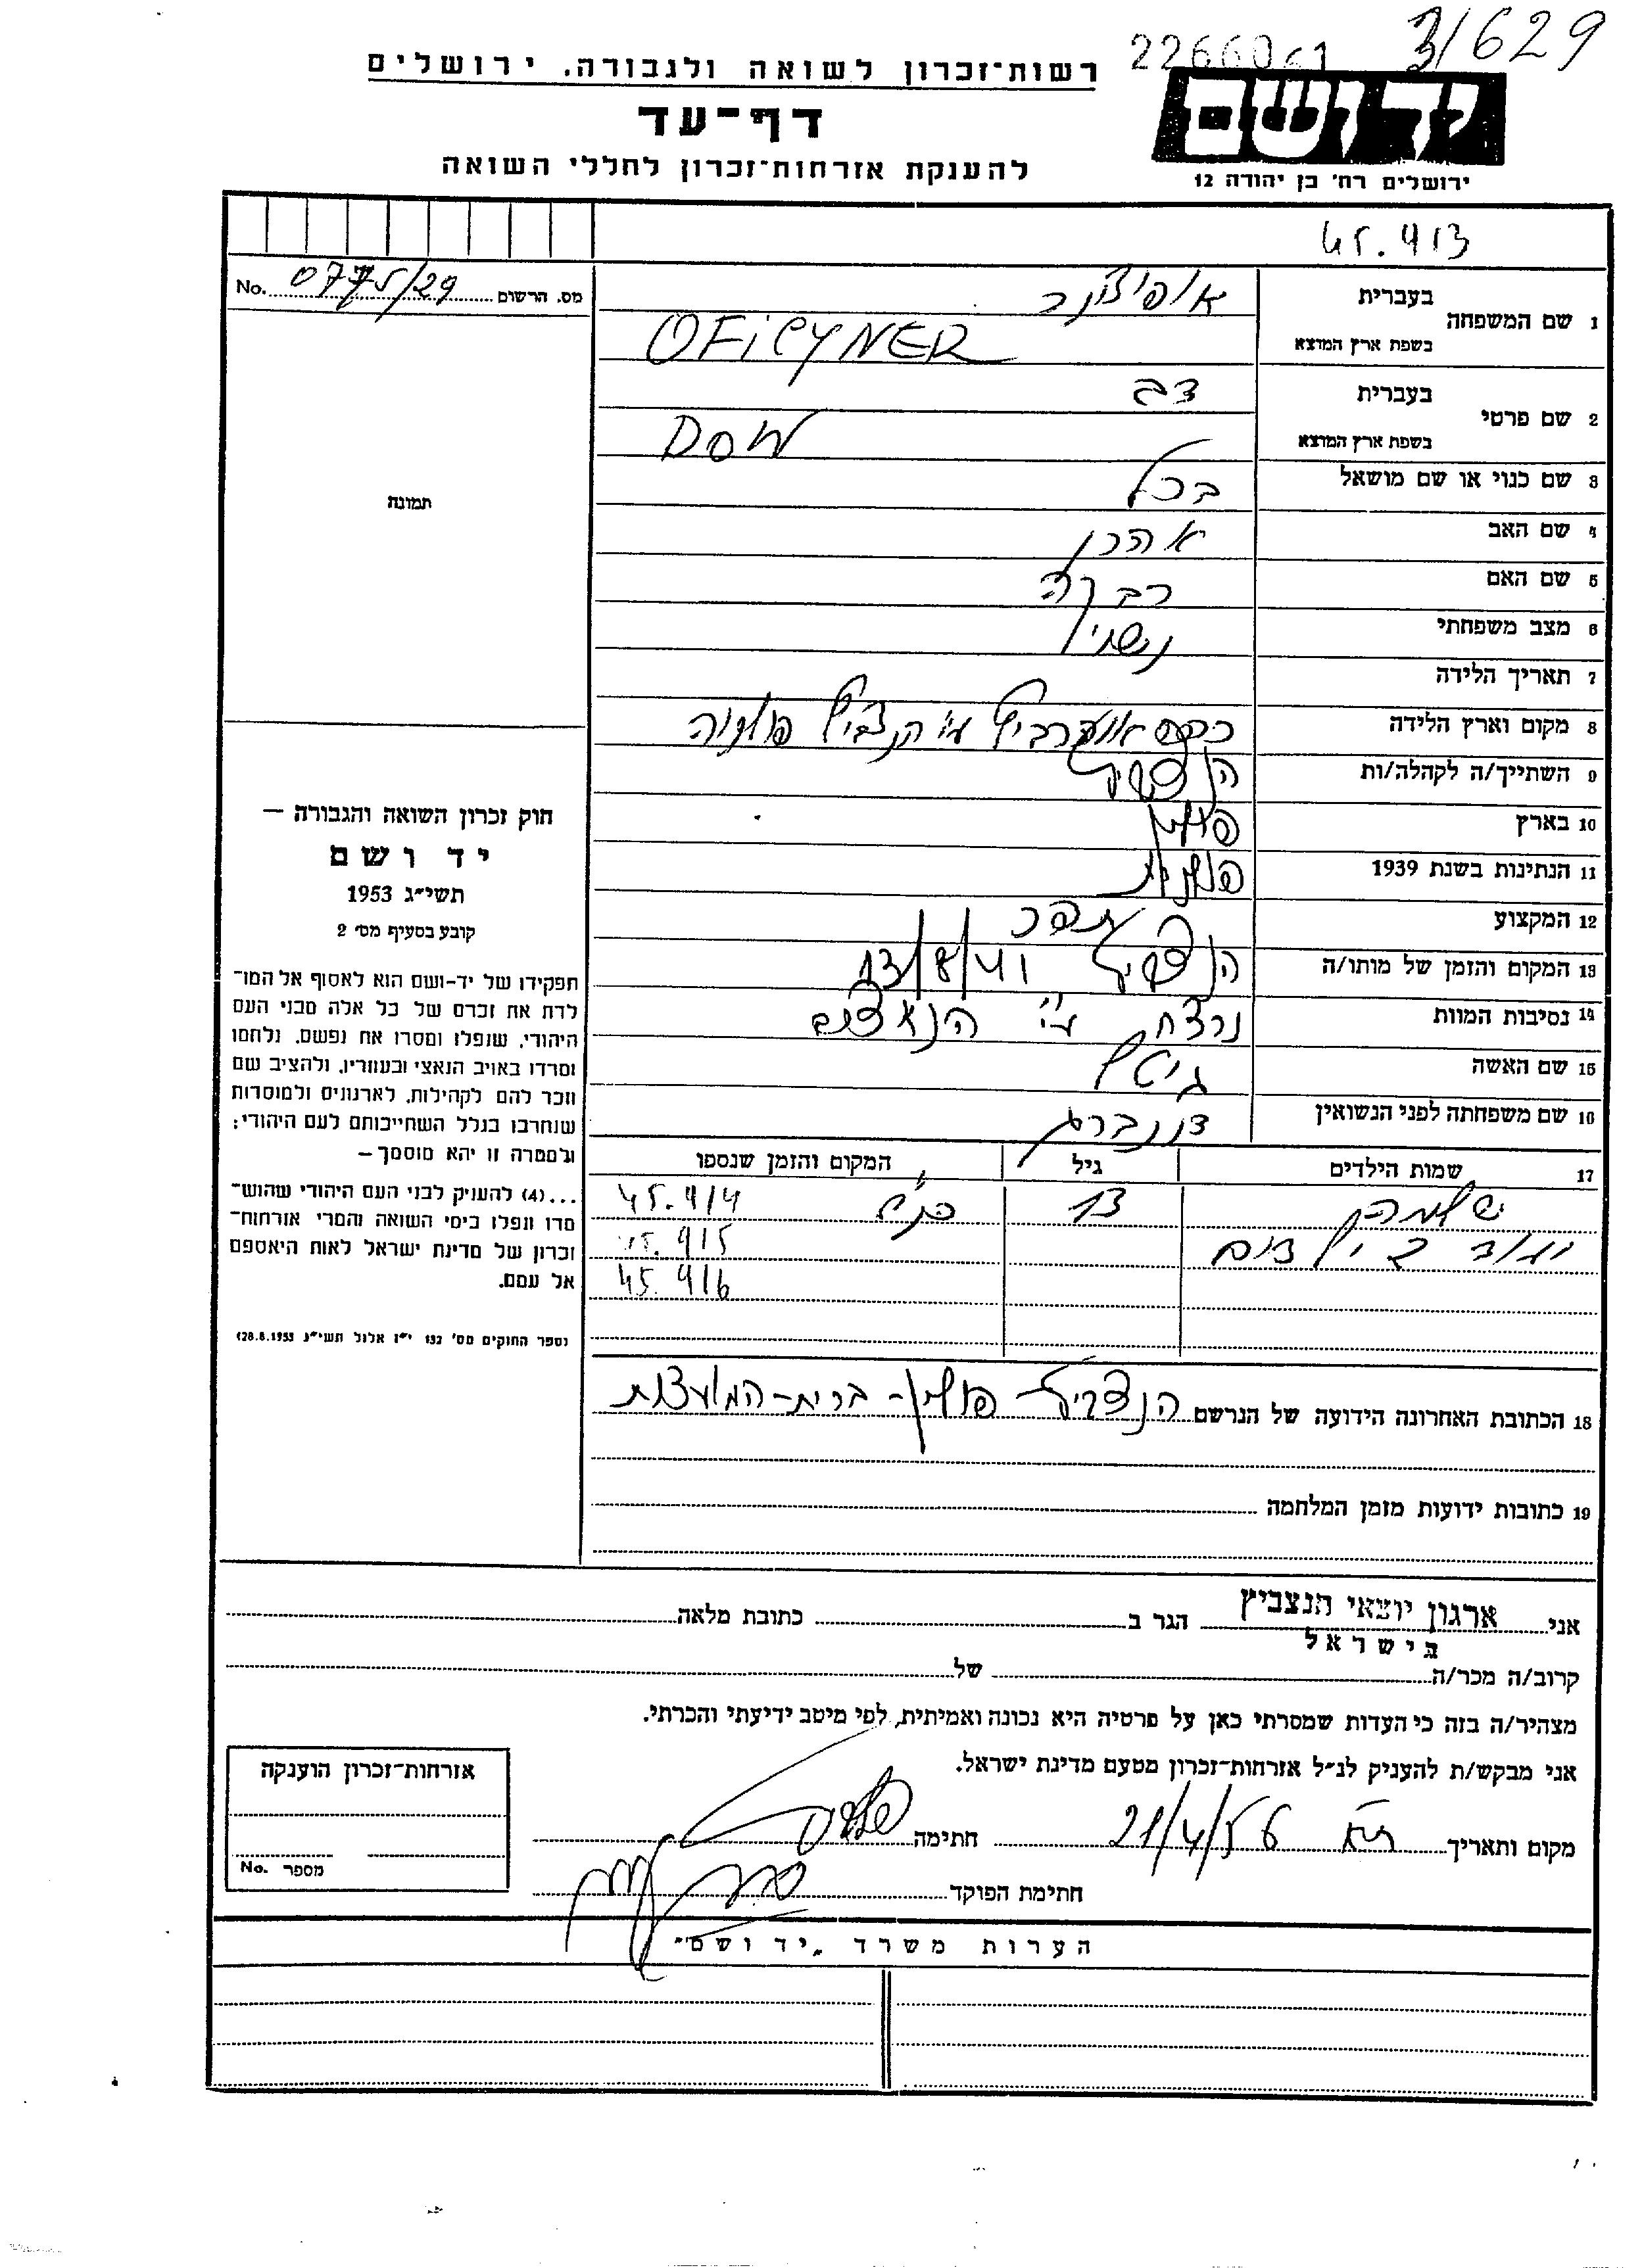 2266061 3/629
רשות־זכרון לשואה ולגבורה. ירושלים
דף־עד
להענקת אזרחות־זכרון לחללי השואה
יד ושם
ירושלים רח' בן יהודה 12
45.413
No. 0775/29 מס. הרשום
תמונה
חוק זכרון השואה והגבורה –
יד ושם
תשי״ג 1953
קובע בסעיף מס׳ 2
תפקידו של יד-ושם הוא לאסוף אל המו־
לדת את זכרם של כל אלה מבני העם
היהודי, שנפלו ומסרו את נפשם, נלחמו
ומרדו באויב הנאצי ובעוזריו, ולהציב שם
וזכר להם לקהילות, לארגונים ולמוסדות
שנחרבו בגלל השתייכותם לעם היהודי;
ולמטרה זו יהא מוסמך –
...(4) להעניק לבני העם היהודי שהוש־
מדו ונפלו בימי השואה והמרי אזרחות־
זכרון של מדינת ישראל לאות היאספם
אל עמם.
(ספר החוקים מס׳ 132 י״ז אלול תשי״ג 28.8.1953)
1 שם המשפחה בעברית אופיצינר
בשפת ארץ המוצא OFiCYNER
2 שם פרטי בעברית דב
בשפת ארץ המוצא DOW
3 שם כנוי או שם מושאל ברל
4 שם האב אהרן
5 שם האם רבקה
6 מצב משפחתי נשוי
7 תאריך הלידה
8 מקום וארץ הלידה ע״י הנצביץ פולניה
9 השתייך/ה לקהלה/ות הנצביץ
10 בארץ פולין
11 הנתינות בשנת 1939 פולנית
12 המקצוע תופר
13 המקום והזמן של מותו/ה הנצביץ 13/8/41
14 נסיבות המוות נרצח ע״י הנאצים
15 שם האשה גיטל
16 שם משפחתה לפני הנשואין
17 שמות הילדים גיל המקום והזמן שנספו
13 כנ״ל 45.414
ועוד 2 ילדים 45.415
45.416
18 הכתובת האחרונה הידועה של הנרשם הנצביץ פולין - ברית-המועצות
19 כתובות ידועות מזמן המלחמה
אני ארגון יוצאי הנצביץ הגר ב כתובת מלאה
בישראל
קרוב/ה מכר/ה של
מצהיר/ה בזה כי העדות שמסרתי כאן על פרטיה היא נכונה ואמיתית, לפי מיטב ידיעתי והכרתי.
אני מבקש/ת להעניק לנ״ל אזרחות־זכרון מטעם מדינת ישראל.
מקום ותאריך ת״א 21/4/56 חתימה
חתימת הפוקד
אזרחות־זכרון הוענקה
מספר No.
הערות משרד „יד ושם״